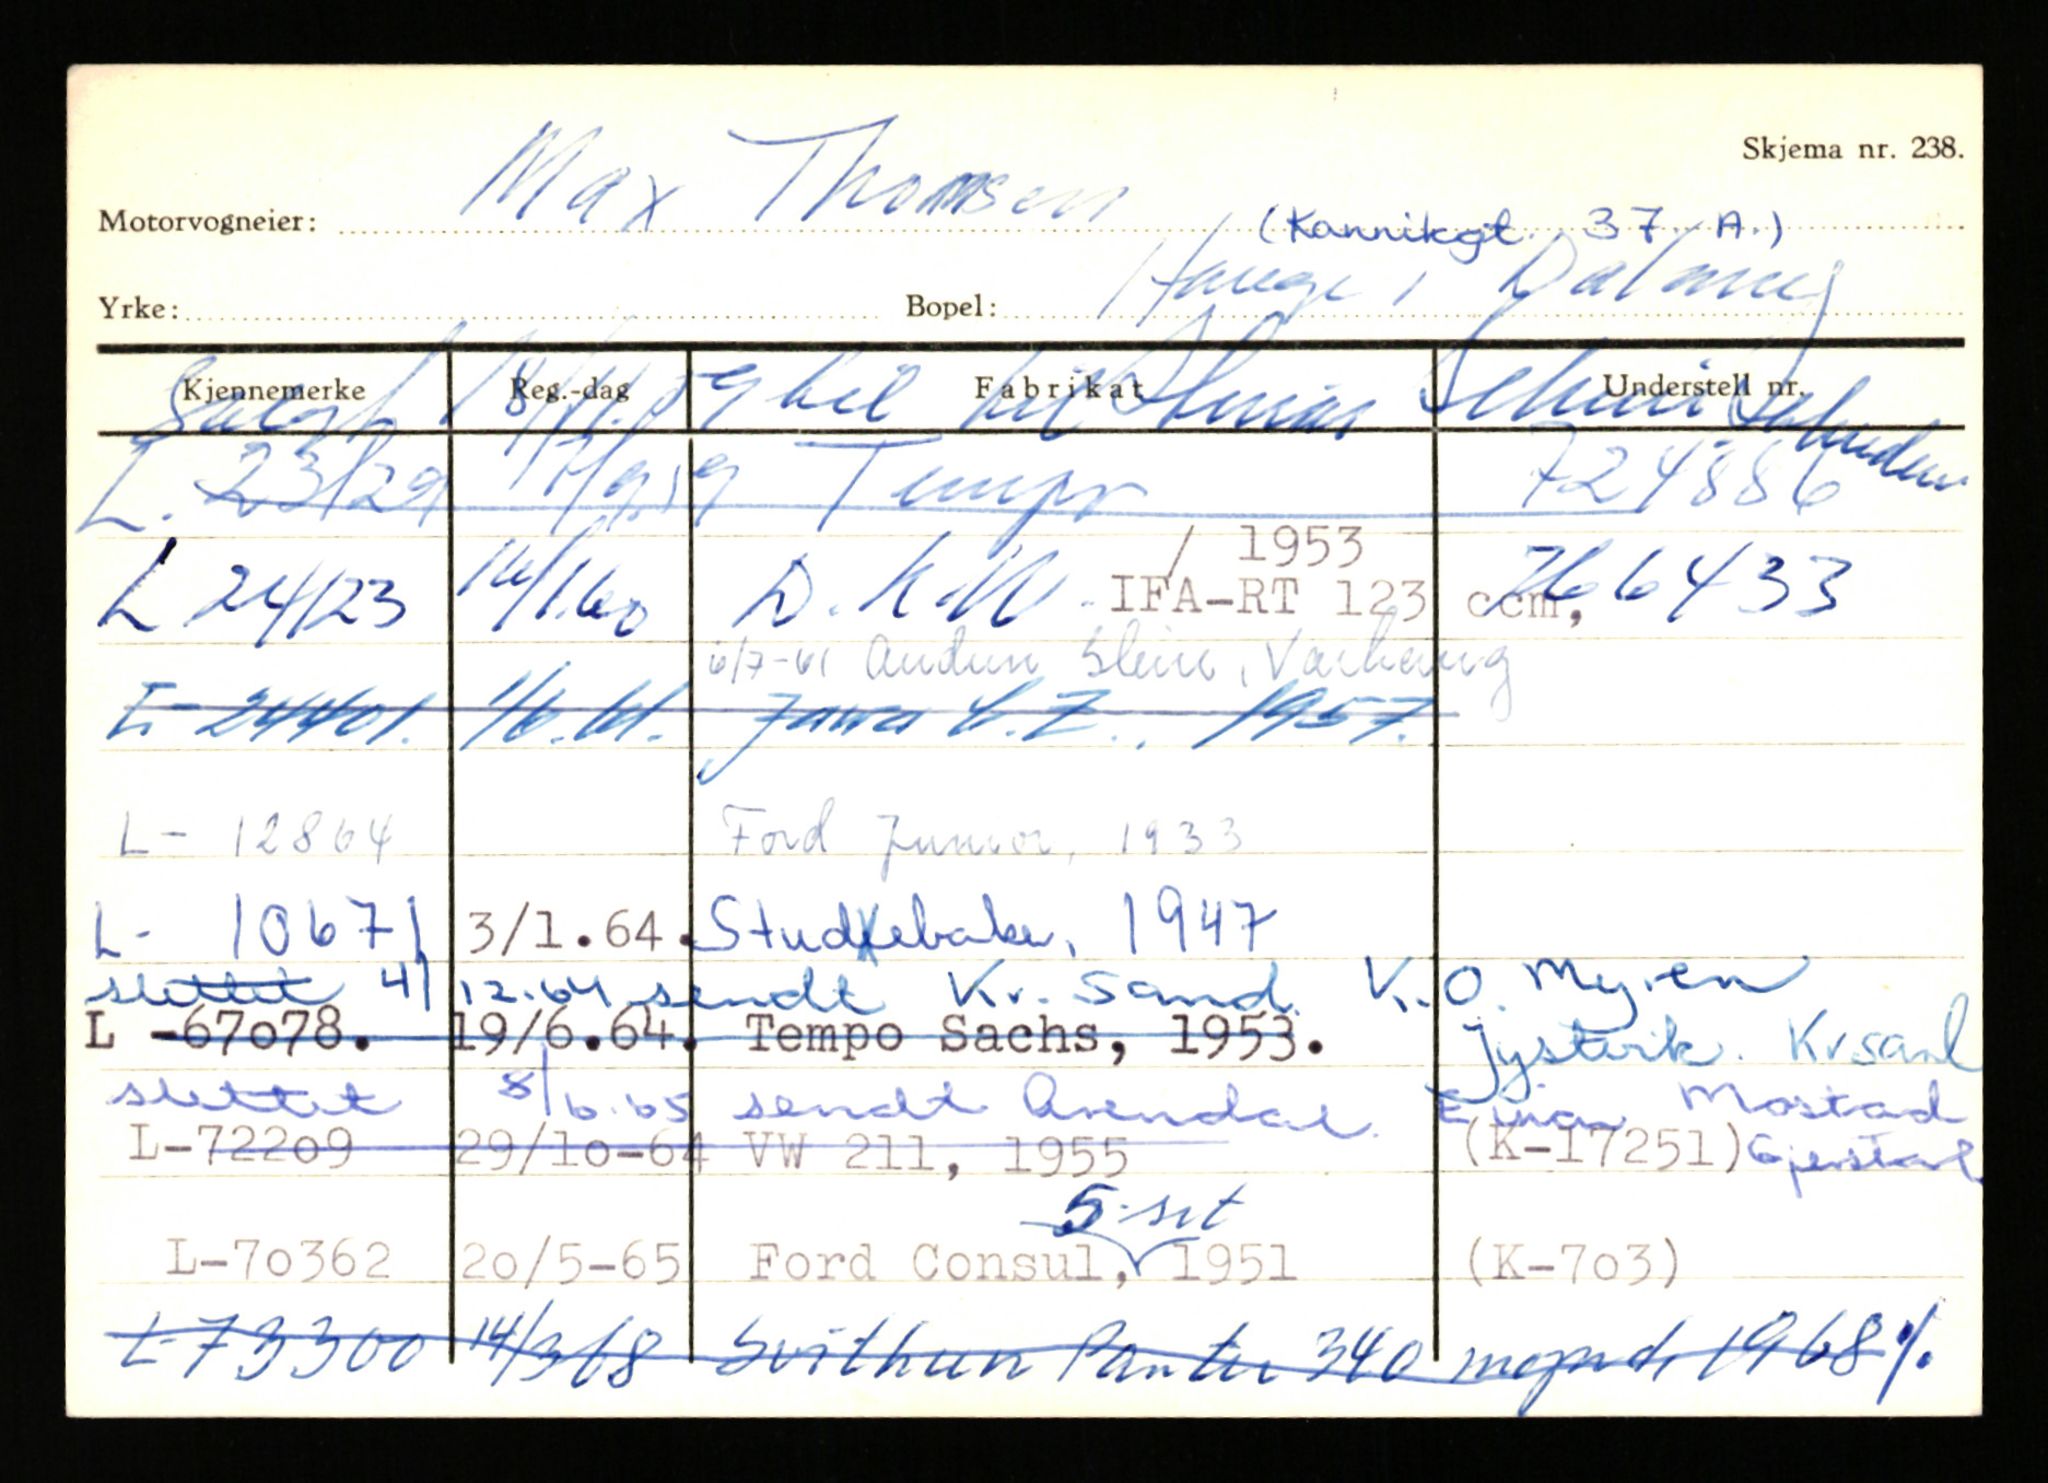 Skjema nr. 238.
Motorvogneier: Max Thomsen
(Kannikgt. 37 A.)
Yrke: Bopel: Hauge i Dalane
Kjennemerke Reg.-dag Fabrikat Understell nr.
Solgt 18/11.59 bil til
L. 23129 17/9.59 Tempo 724886
/ 1953
L 24123 14/1.60 D.K.W. IFA-RT 123 ccm, 766433
6/7-61 Audun Stein, Varhaug
L- 24401. 1/6.61. Jawa C.Z., 1957.
L- 12864 Ford Junior, 1933
L- 10671 3/1.64. Studebaker, 1947
slettet 4/12.64 sendt Kr. Sand. K.O. Myren
L -67078. 19/6.64. Tempo Sachs, 1953. Kr.sand
slettet 8/6.65 sendt Arendal. Einar Mostad
L-72209 29/10-64 VW 211, 1955 (K-17251) Gjerstad
5-set
L-70362 20/5-65 Ford Consul, 1951 (K-703)
L-73300 14/3 68 Svithun Panter 340 moped, 1968 %.